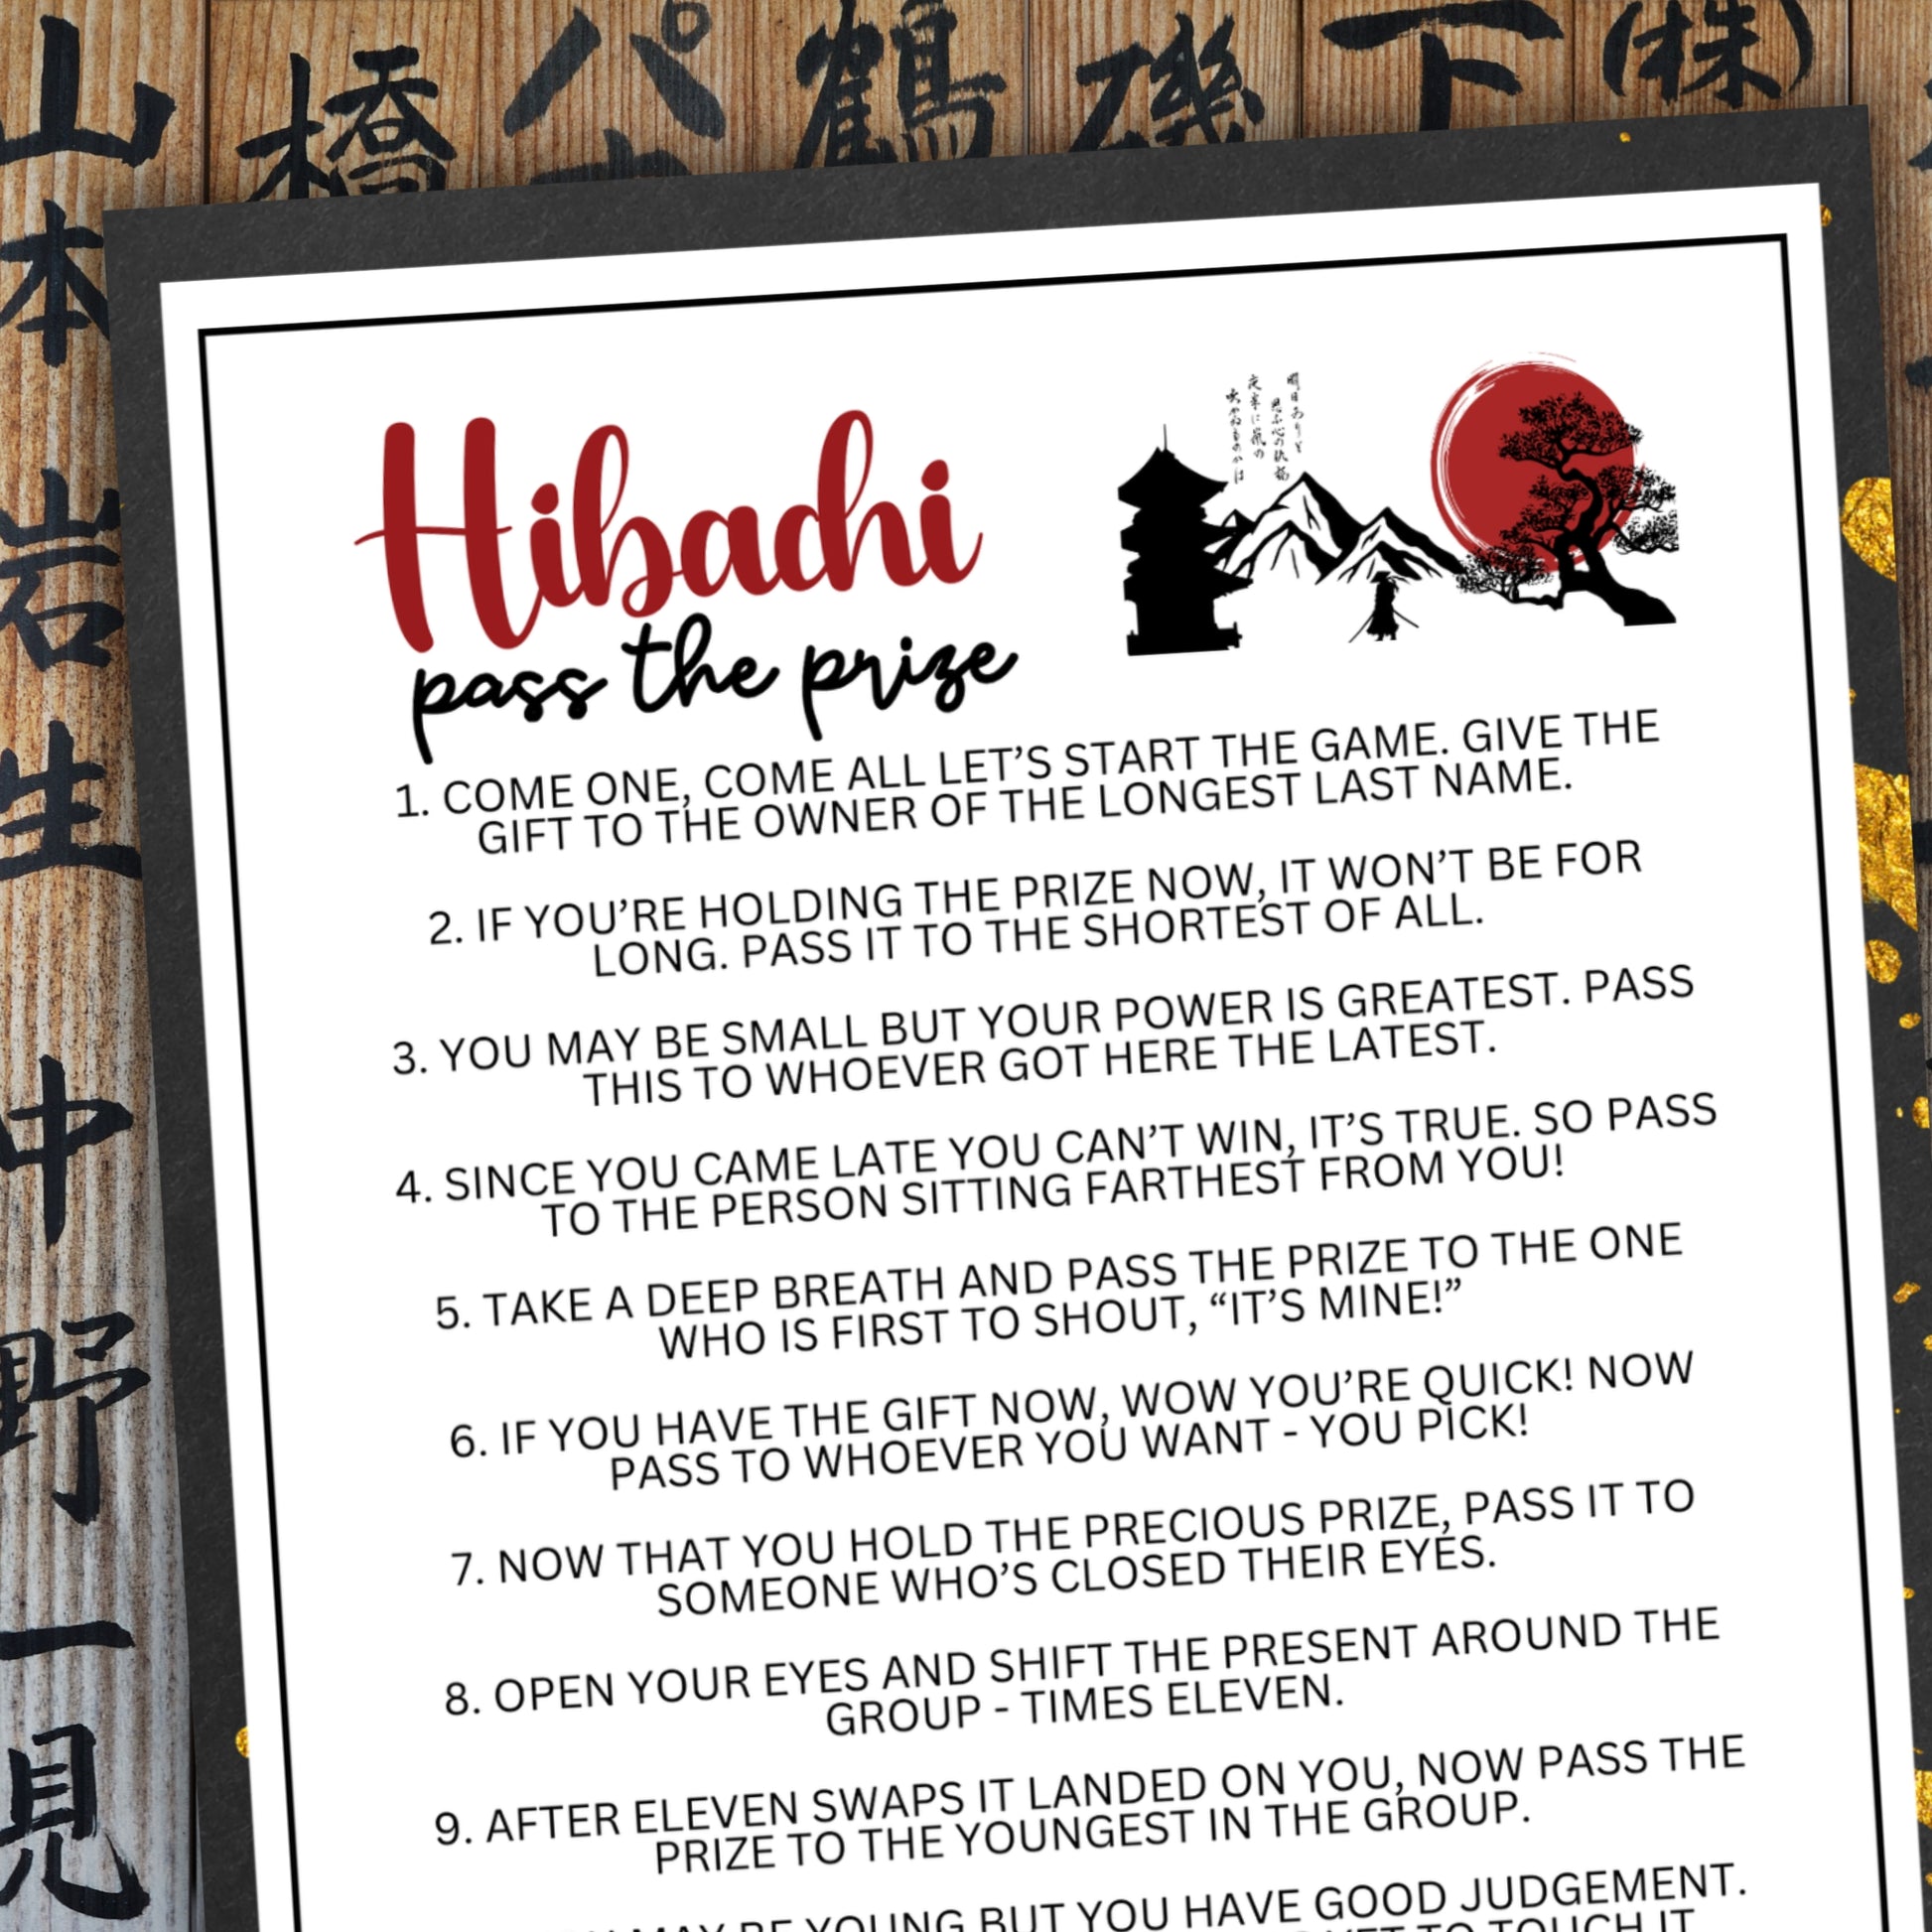 山本
橋
パ
鶴
磯
下
(株)
岩
生
中
野
一
見
Hibachi
pass the prize
明日ありと
思ふ心の仇桜
夜半に嵐の
吹かぬものかは
1. COME ONE, COME ALL LET’S START THE GAME. GIVE THE
GIFT TO THE OWNER OF THE LONGEST LAST NAME.
2. IF YOU’RE HOLDING THE PRIZE NOW, IT WON’T BE FOR
LONG. PASS IT TO THE SHORTEST OF ALL.
3. YOU MAY BE SMALL BUT YOUR POWER IS GREATEST. PASS
THIS TO WHOEVER GOT HERE THE LATEST.
4. SINCE YOU CAME LATE YOU CAN’T WIN, IT’S TRUE. SO PASS
TO THE PERSON SITTING FARTHEST FROM YOU!
5. TAKE A DEEP BREATH AND PASS THE PRIZE TO THE ONE
WHO IS FIRST TO SHOUT, “IT’S MINE!”
6. IF YOU HAVE THE GIFT NOW, WOW YOU’RE QUICK! NOW
PASS TO WHOEVER YOU WANT - YOU PICK!
7. NOW THAT YOU HOLD THE PRECIOUS PRIZE, PASS IT TO
SOMEONE WHO’S CLOSED THEIR EYES.
8. OPEN YOUR EYES AND SHIFT THE PRESENT AROUND THE
GROUP - TIMES ELEVEN.
9. AFTER ELEVEN SWAPS IT LANDED ON YOU, NOW PASS THE
PRIZE TO THE YOUNGEST IN THE GROUP.
MAY BE YOUNG BUT YOU HAVE GOOD JUDGEMENT.
YET TO TOUCH IT